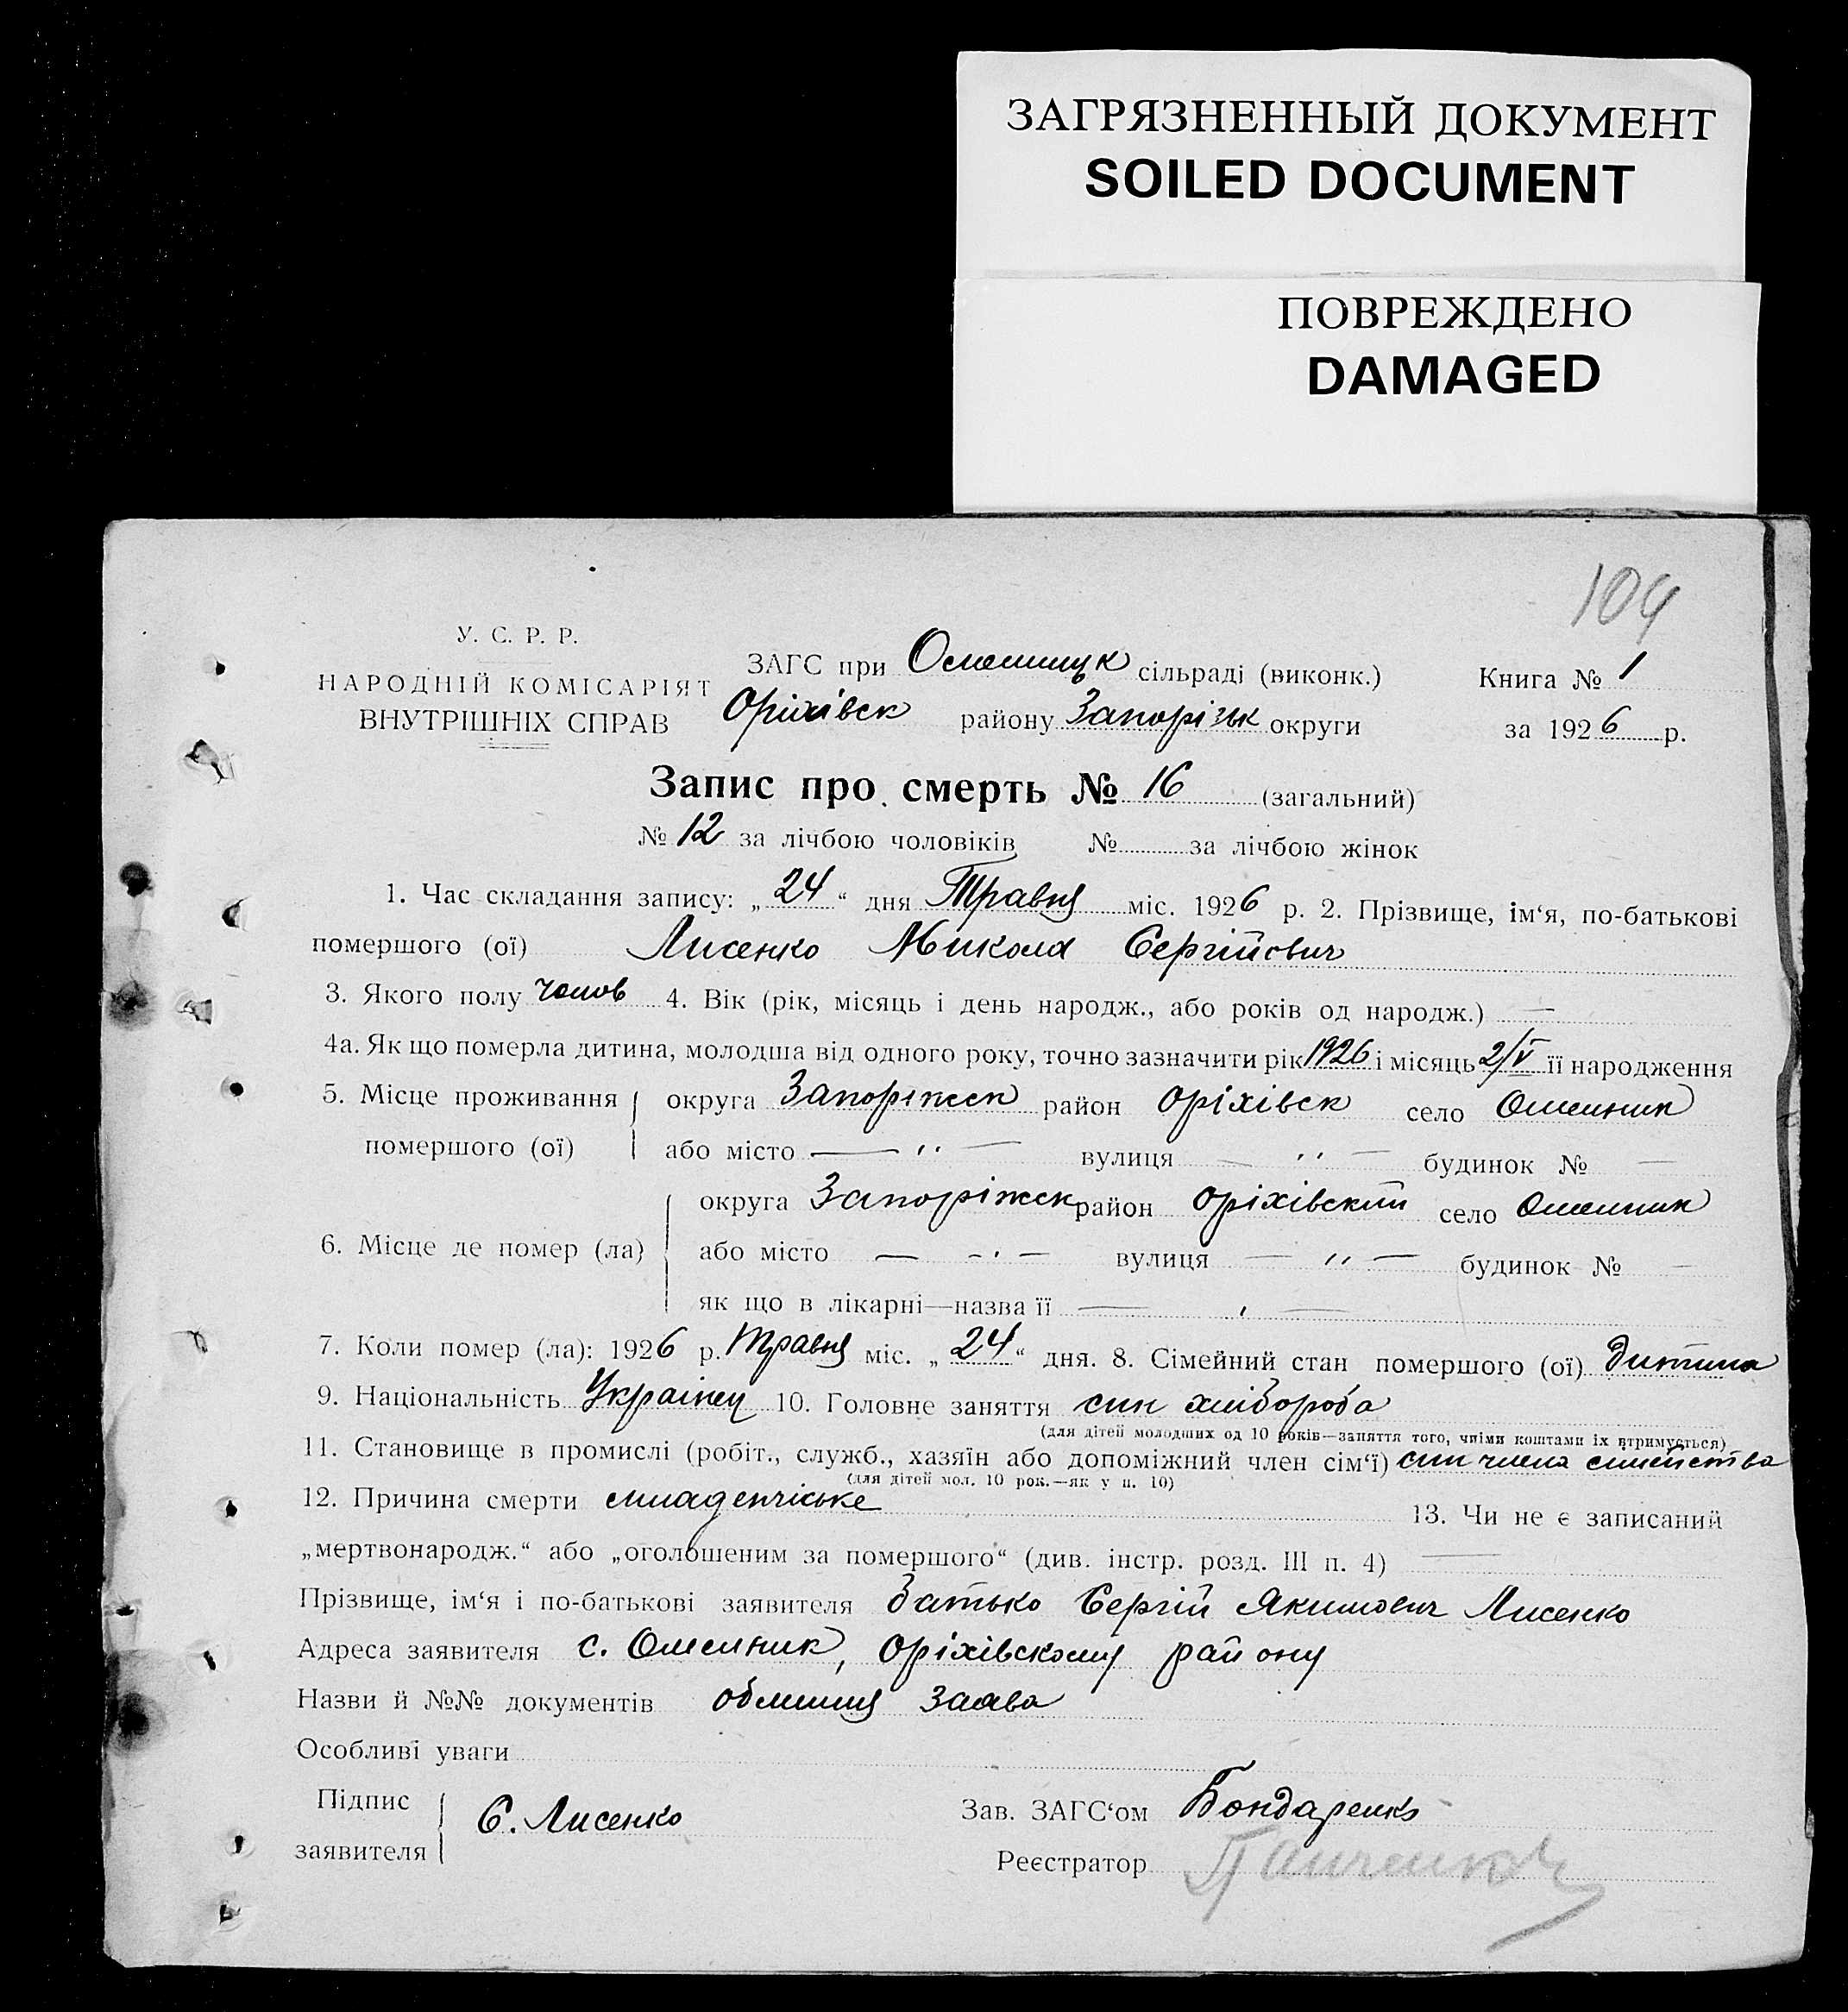 ЗАГРЯЗНЕННЫЙ ДОКУМЕНТ
SOILED DOCUMENT
ПОВРЕЖДЕНО
DAMAGED
104
У. С. Р. Р.
НАРОДНІЙ КОМІСАРІЯТ
ВНУТРІШНІХ СПРАВ
ЗАГС при сільраді (виконк.)
Оріхівск району Запорізьк округи
Книга № 1
за 1926 р.
Запис про смерть № 16 (загальний)
№ 12 за лічбою чоловіків № за лічбою жінок
1. Час складання запису: „24“ дня Травня міс. 1926 р. 2. Прізвище, ім‘я, по-батькові
помершого (ої) Лисенко Микола Сергійович
3. Якого полу Чолов 4. Вік (рік, місяць і день народж., або років од народж.) —
4а. Як що померла дитина, молодша від одного року, точно зазначити рік 1926 і місяць 2/V її народження
5. Місце проживання помершого (ої) округа Запоріжск район Оріхівск село Омельник
або місто — „ — вулиця — „ — будинок № —
6. Місце де помер (ла) округа Запоріжск район Оріхівский село Омельник
або місто — „ — вулиця — „ — будинок № —
як що в лікарні—назва її — „ —
7. Коли помер (ла): 1926 р. Травня міс. „24“ дня. 8. Сімейний стан помершого (ої) дитина
9. Національність Українец 10. Головне заняття син хлібороба
(для дітей молодших од 10 років—заняття того, чиїми коштами їх втримується)
11. Становище в промислі (робіт., служб., хазяїн або допоміжний член сім‘ї) син члена сімейства
(для дітей мол. 10 рок.—як у п. 10)
12. Причина смерти младенчіське 13. Чи не є записаний
„мертвонародж.“ або „оголошеним за помершого“ (див. інстр. розд. III п. 4) —
Прізвище, ім‘я і по-батькові заявителя батько Сергій Якимович Лисенко
Адреса заявителя с. Омельник, Оріхівскому району
Назви й №№ документів заява
Особливі уваги
Підпис заявителя С. Лисенко
Зав. ЗАГС‘ом Бондаренко
Реєстратор